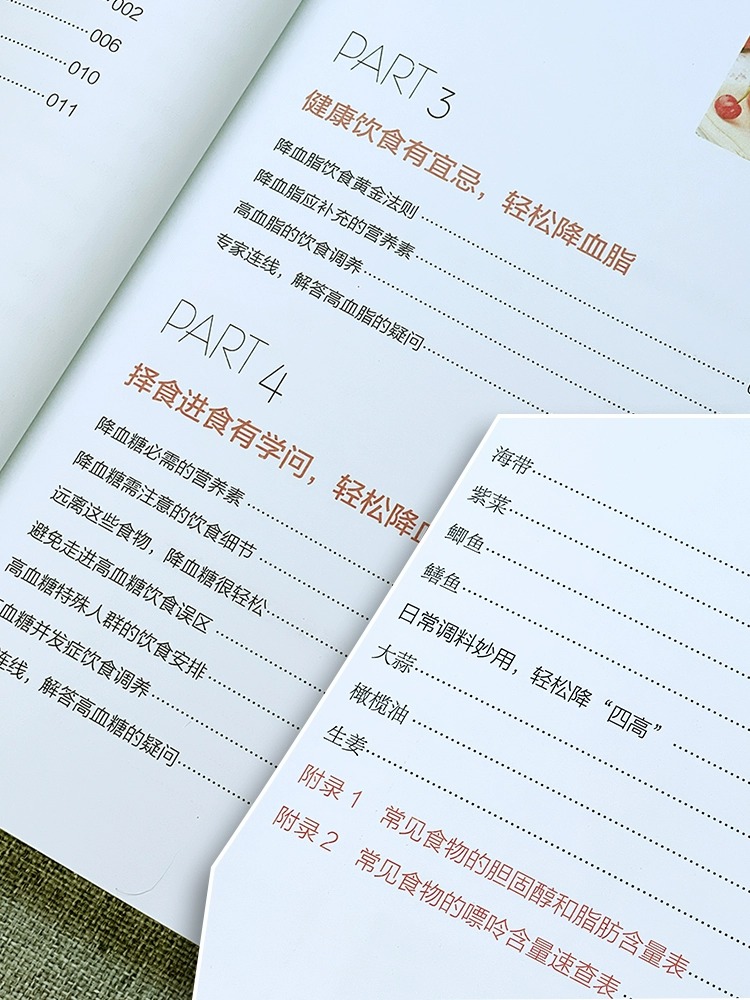 002
006
010
011
PART 3
健康饮食有宜忌，轻松降血脂
降血脂饮食黄金法则
降血脂应补充的营养素
高血脂的饮食调养
专家连线，解答高血脂的疑问
PART 4
择食进食有学问，轻松降
降血糖必需的营养素
降血糖需注意的饮食细节
远离这些食物，降血糖很轻松
避免走进高血糖饮食误区
高血糖特殊人群的饮食安排
血糖并发症饮食调养
连线，解答高血糖的疑问
海带
紫菜
鲫鱼
鳝鱼
日常调料妙用，轻松降“四高”
大蒜
橄榄油
生姜
附录 1 常见食物的胆固醇和脂肪含量表
附录 2 常见食物的嘌呤含量速查表